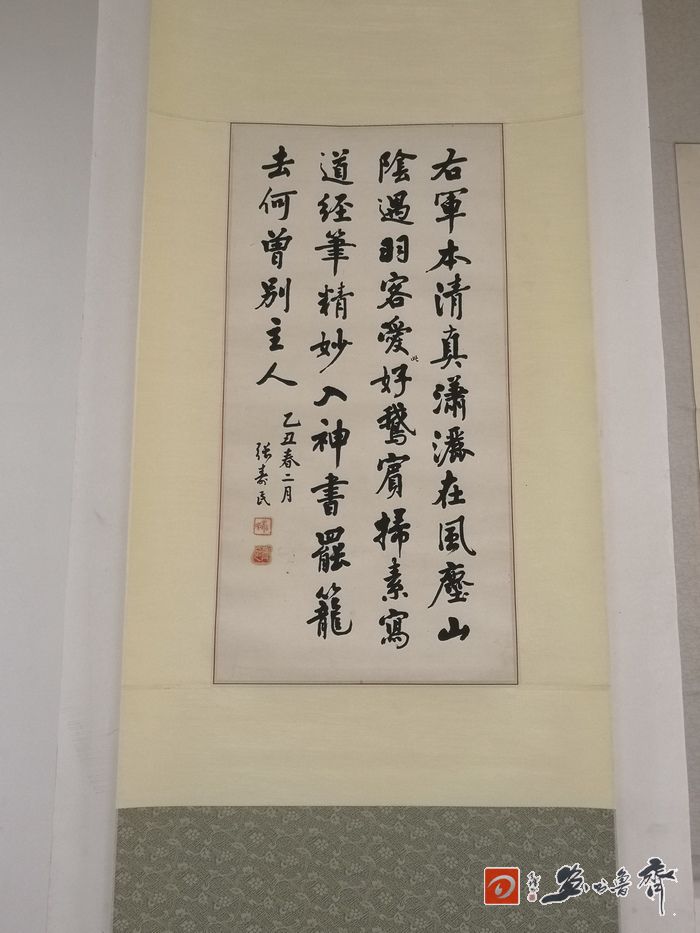 右軍本清真瀟灑在風塵山
陰過羽客愛此好鵝賓掃素寫
道经筆精妙入神書罷籠
去何曾别主人
乙丑春二月
张寿民
齊鲁